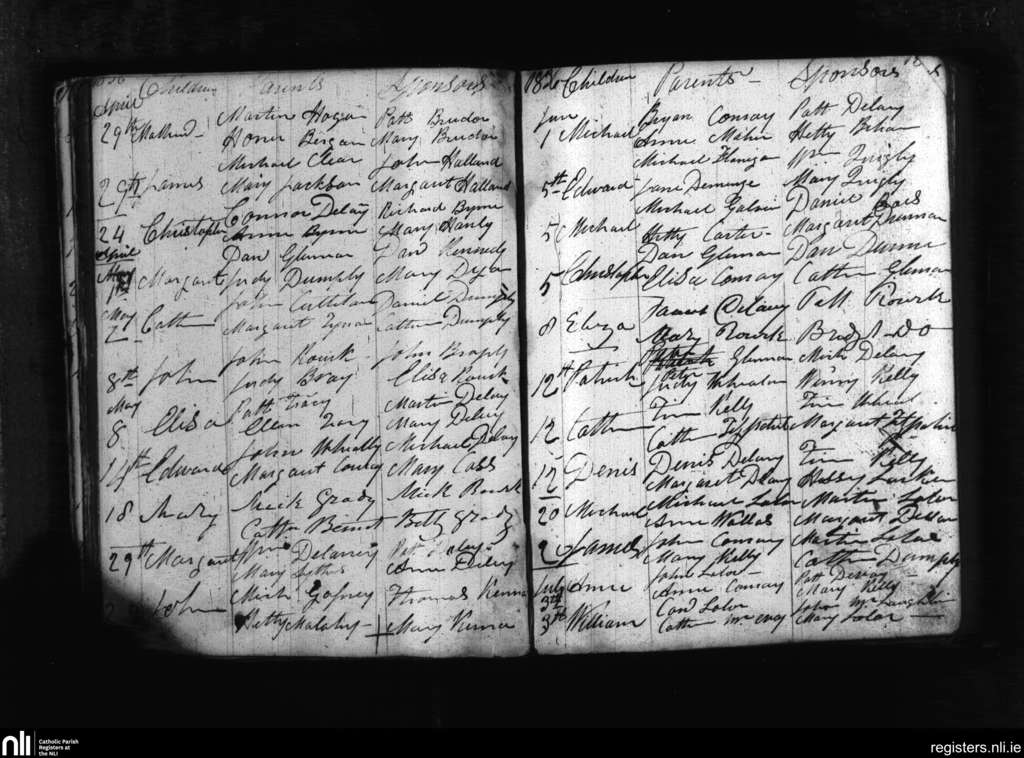 Children Parents Sponsors
April
29th Martin Hogan Patt
Honor Bergan Mary
Michael Clear John Halland
29th James Mary Jackson Margaret Halland
Connor Delany Richard Byrne
24 Christopher Anne Byrne Mary Hanly
April Dan Glennan Dan Kennedy
May Margaret Judy Dumphy Mary Dyer
May John Daniel Dumphy
2 Cathn Margaret Cathn Dumphy
John Rourk John Brophy
8th John Judy Bray Elisa Rourk
May Patt Tracy Martin Delany
8 Elisa Ellen Tracy Mary Delany
14th Edward John Whally Michael Delany
Margaret Conroy Mary Cass
18 Mary Mick Grady Mick
Cathn Bennet Betty Grady
29th Margaret Delaney Patt Delany
Mary Anne Delany
John Mick Gafney Thomas Kenna
Betty Malohy Mary Kenna
1826 Children Parents Sponsors
June Bryan Conray Patt Delany
1 Michael Anne Maher Hetty Behan
Michael Flanigan Wm Quigly
5th Edward Jane Dempsy Mary Quigly
Michael Galvin Daniel
5 Michael Hetty Carter Margaret Drennan
Dan Glennan Dan Dunne
5 Christopher Elisa Conray Cathn Glennan
James Delany Patt Rourk
8 Eliza Mary Rourk Bridgt Do
Glennan Mick Delany
12th Patrick Peter Judy Whealan Winny Kelly
Tim Kelly Tim Whelan
12 Cathn Cathn Fitzpatrick Margaret Fitzpatrick
12 Denis Denis Delany Tim Kelly
Margaret Delany Larkin
20 Michael Michael Lalor Martin Lalor
Anne Wallas Margaret
2 James John Conray Martin Lalor
Mary Kelly Cathn Dumphy
July Anne John Lalor Patt
3th Anne Conray Mary Kelly
3th William Con Lalor John McLaughlin
Cathn McEvoy Mary Lalor
nli
Catholic Parish
Registers at
the NLI
registers.nli.ie